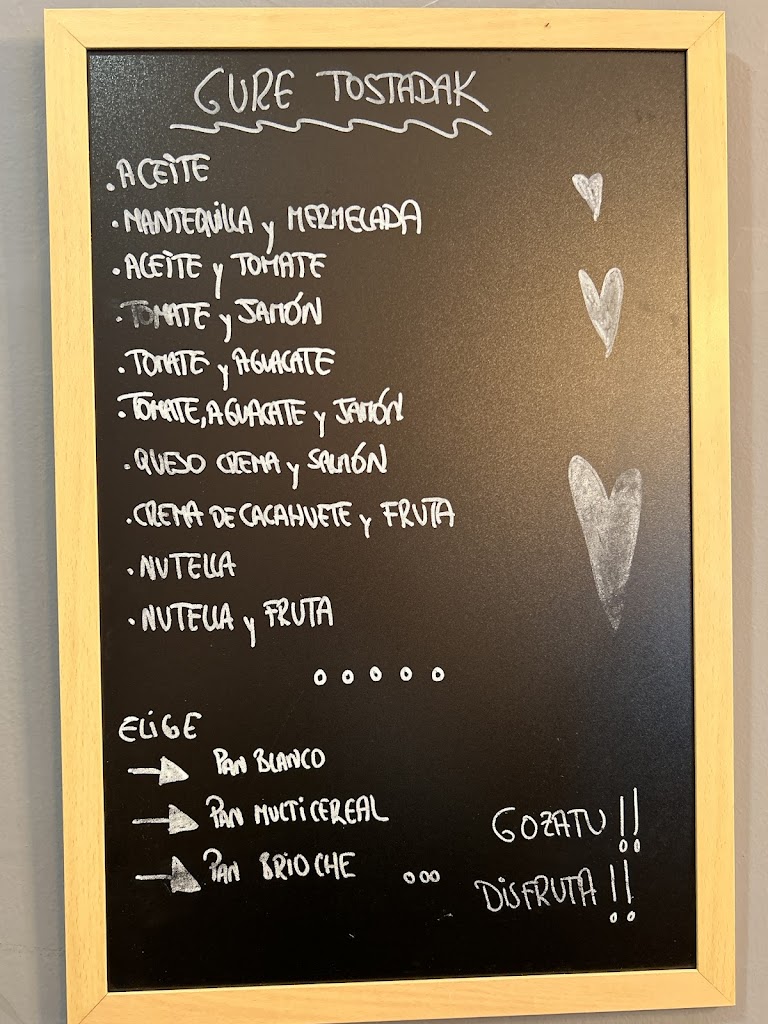 GURE TOSTADAK
. ACEITE
. MANTEQUILLA y MERMELADA
. ACEITE y TOMATE
. TOMATE y JAMÓN
. TOMATE y AGUACATE
. TOMATE, AGUACATE y JAMÓN
. QUESO CREMA y SALMÓN
. CREMA DE CACAHUETE y FRUTA
. NUTELLA
. NUTELLA y FRUTA
ELIGE
→ PAN BLANCO
→ PAN MULTICEREAL
→ PAN BRIOCHE ...
GOZATU !!
DISFRUTA !!